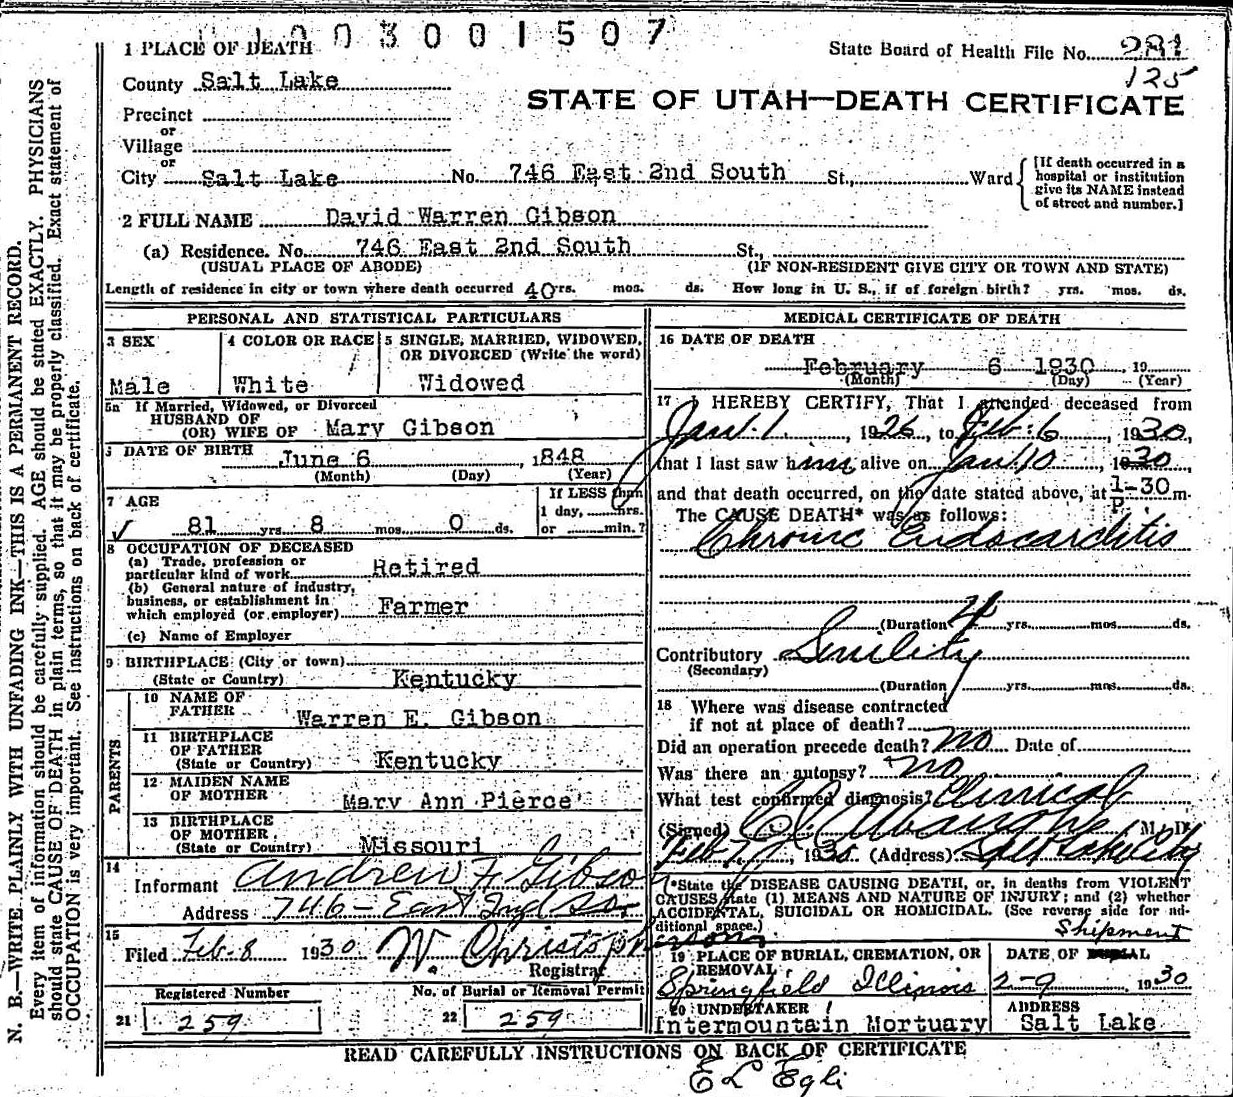 003001507
1 PLACE OF DEATH
State Board of Health File No. 281
125
County Salt Lake
STATE OF UTAH—DEATH CERTIFICATE
Precinct
or
Village
or
City Salt Lake No. 746 East 2nd South St., Ward
[If death occurred in a
hospital or institution
give its NAME instead
of street and number.]
2 FULL NAME David Warren Gibson
(a) Residence. No. 746 East 2nd South St.,
(USUAL PLACE OF ABODE) (IF NON-RESIDENT GIVE CITY OR TOWN AND STATE)
Length of residence in city or town where death occurred 40 rs. mos. ds. How long in U. S., if of foreign birth? yrs. mos. ds.
PERSONAL AND STATISTICAL PARTICULARS
3 SEX
Male
4 COLOR OR RACE
White
5 SINGLE, MARRIED, WIDOWED,
OR DIVORCED (Write the word)
Widowed
5a If Married, Widowed, or Divorced
HUSBAND OF
(OR) WIFE OF Mary Gibson
DATE OF BIRTH
June 6, 1848
(Month) (Day) (Year)
7 AGE
81 yrs. 8 mos. 0 ds.
If LESS than
1 day, hrs.
or min.?
8 OCCUPATION OF DECEASED
(a) Trade, profession or
particular kind of work Retired
(b) General nature of industry,
business, or establishment in
which employed (or employer) Farmer
(c) Name of Employer
9 BIRTHPLACE (City or town)
(State or Country) Kentucky
PARENTS
10 NAME OF
FATHER Warren E. Gibson
11 BIRTHPLACE
OF FATHER
(State or Country) Kentucky
12 MAIDEN NAME
OF MOTHER Mary Ann Pierce
13 BIRTHPLACE
OF MOTHER
(State or Country) Missouri
14
Informant Andrew F Gibson
Address 746 - East 2nd So
15
Filed Feb-8 1930 W. Christopherson
Registrar
Registered Number
21 259
No. of Burial or Removal Permit
22 259
MEDICAL CERTIFICATE OF DEATH
16 DATE OF DEATH
February 6 1930, 19
(Month) (Day) (Year)
17 I HEREBY CERTIFY, That I attended deceased from
Jan. 1, 1926, to Feb. 6, 1930,
that I last saw him alive on Jan 10, 1930,
and that death occurred, on the date stated above, at 1-30 P. m.
The CAUSE DEATH* was as follows:
Chronic Endocarditis
(Duration 4 yrs. mos. ds.
Contributory Senility
(Secondary)
(Duration yrs. mos. ds.
18 Where was disease contracted
if not at place of death?
Did an operation precede death? no Date of
Was there an autopsy? no
What test confirmed diagnosis? Clinical
(Signed) M. D.
Feb 7, 1930 (Address) Salt Lake City
*State the DISEASE CAUSING DEATH, or, in deaths from VIOLENT
CAUSES state (1) MEANS AND NATURE OF INJURY; and (2) whether
ACCIDENTAL, SUICIDAL OR HOMICIDAL. (See reverse side for ad-
ditional space.)
Shipment
19 PLACE OF BURIAL, CREMATION, OR
REMOVAL
Springfield Illinois
DATE OF BURIAL
2-9 1930
20 UNDERTAKER
Intermountain Mortuary
ADDRESS
Salt Lake
READ CAREFULLY INSTRUCTIONS ON BACK OF CERTIFICATE
E L Egli
N. B.—WRITE PLAINLY WITH UNFADING INK—THIS IS A PERMANENT RECORD.
Every item of information should be carefully supplied. AGE should be stated EXACTLY. PHYSICIANS
should state CAUSE OF DEATH in plain terms, so that it may be properly classified. Exact statement of
OCCUPATION is very important. See instructions on back of certificate.